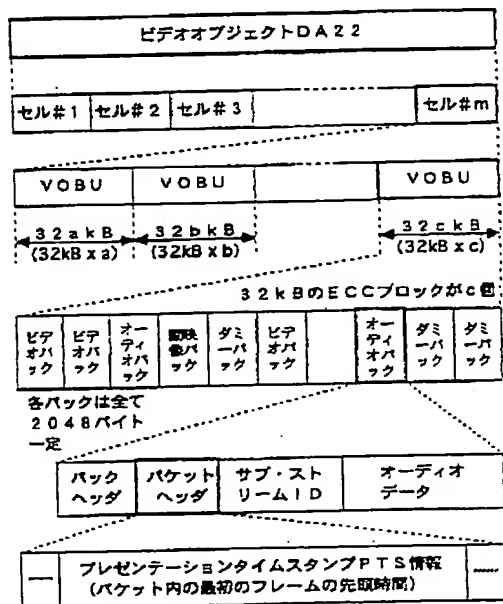 ビデオオブジェクトDA22
セル#1 セル#2 セル#3 セル#m
VOBU VOBU VOBU
32akB 32bkB 32ckB
(32kBxa) (32kBxb) (32kBxc)
32kBのECCブロックがc個
ビデオパック ビデオパック オーディオパック 副映像パック ダミーパック ビデオパック オーディオパック ダミーパック ダミーパック
各パックは全て
2048バイト
一定
パック パケット サブ・スト オーディオ
ヘッダ ヘッダ リームID データ
プレゼンテーションタイムスタンプPTS情報
(パケット内の最初のフレームの先取時間)